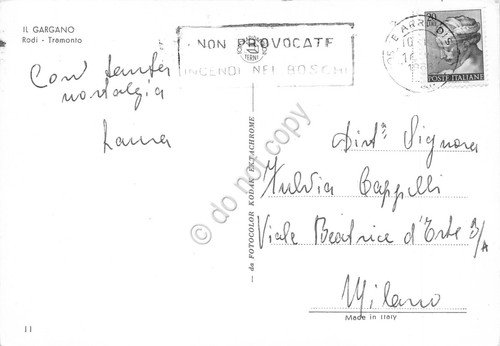 IL GARGANO
Rodi - Tramonto
NON PROVOCATE
INCENDI NEI BOSCHI
POSTE ITALIANE
Con tanta
nostalgia
Laura
Dist.ª Signora
Fulvia Cappelli
Viale Beatrice d'Este 3/A
Milano
da FOTOCOLOR KODAK EKTACHROME
do not copy
Made in Italy
11